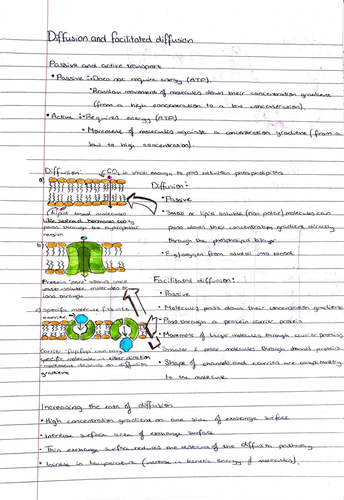 Diffusion and facilitated diffusion
Passive and active transport
• Passive :• Does not require energy (ATP).
• Random movement of molecules down their concentration gradient
(from a high concentration to a low concentration).
• Active :• Requires energy (ATP)
• Movement of molecules against a concentration gradient (from a
low to high concentration).
Diffusion:
CO₂ is small enough to pass between phospholipids
a)
(Lipid based molecules
like steroid hormones easily
pass through the hydrophobic
region
Diffusion:
• Passive
• Small or lipid soluble (non polar) molecules can
pass down their concentration gradient directly
through the phospholipid bilayer
• E.g oxygen from alveoli into blood
b)
Protein "pore" allows
water-soluble molecules or
ions through
c) specific molecule fits into
carrier
Carrier "flipflops" can carry
specific molecules in either direction
movement depends on diffusion
gradient
Facilitated diffusion:
• Passive
• Molecules pass down their concentration gradient
• Pass through a protein carrier protein
• Movement of large molecules through carrier proteins
Smaller & polar molecules through channel proteins
• Shape of channels and carriers are complementary
to the molecule.
Increasing the rate of diffusion
• High concentration gradient on one side of exchange surface
• Increase surface area of exchange surface
• Thin exchange surface reduces the distance of the diffusion pathway
• Increase in temperature (increase in kinetic energy of molecules).